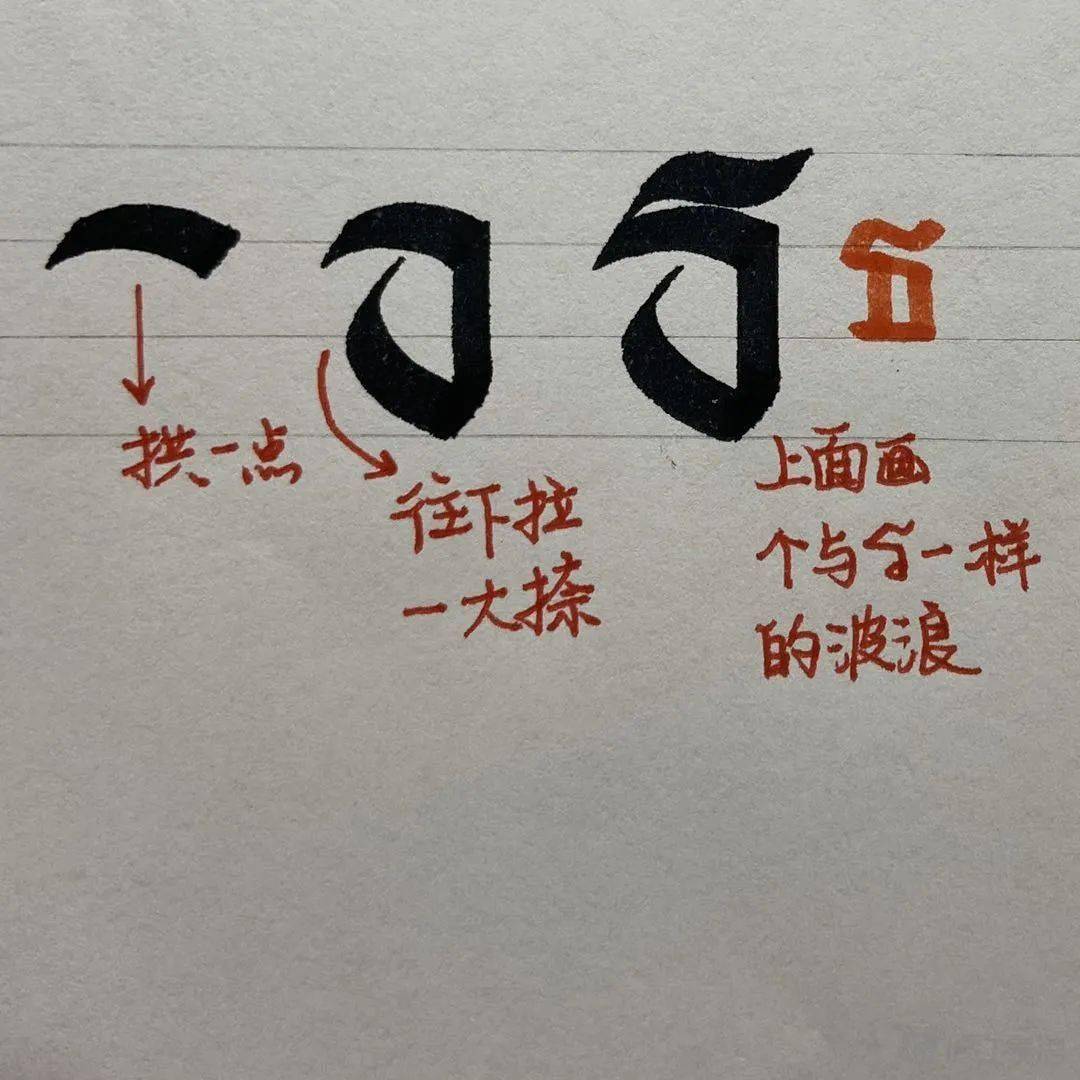 อ ธ ธ
拱一点
往下拉
一大捺
上面画
个与ร一样
的波浪